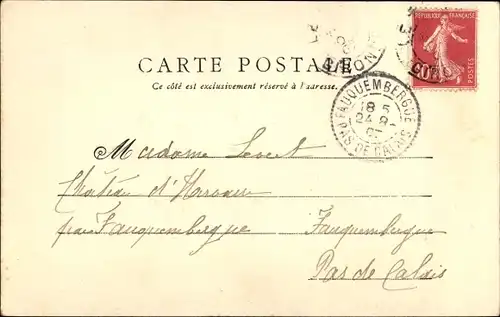 RÉPUBLIQUE FRANÇAISE
POSTES
CARTE POSTALE
Ce côté est exclusivement réservé à l'adresse.
FAUQUEMBERGUE
18 5
24 8
PAS DE CALAIS
Madame
Château d'
par Fauquembergue
Fauquembergue
Pas de Calais